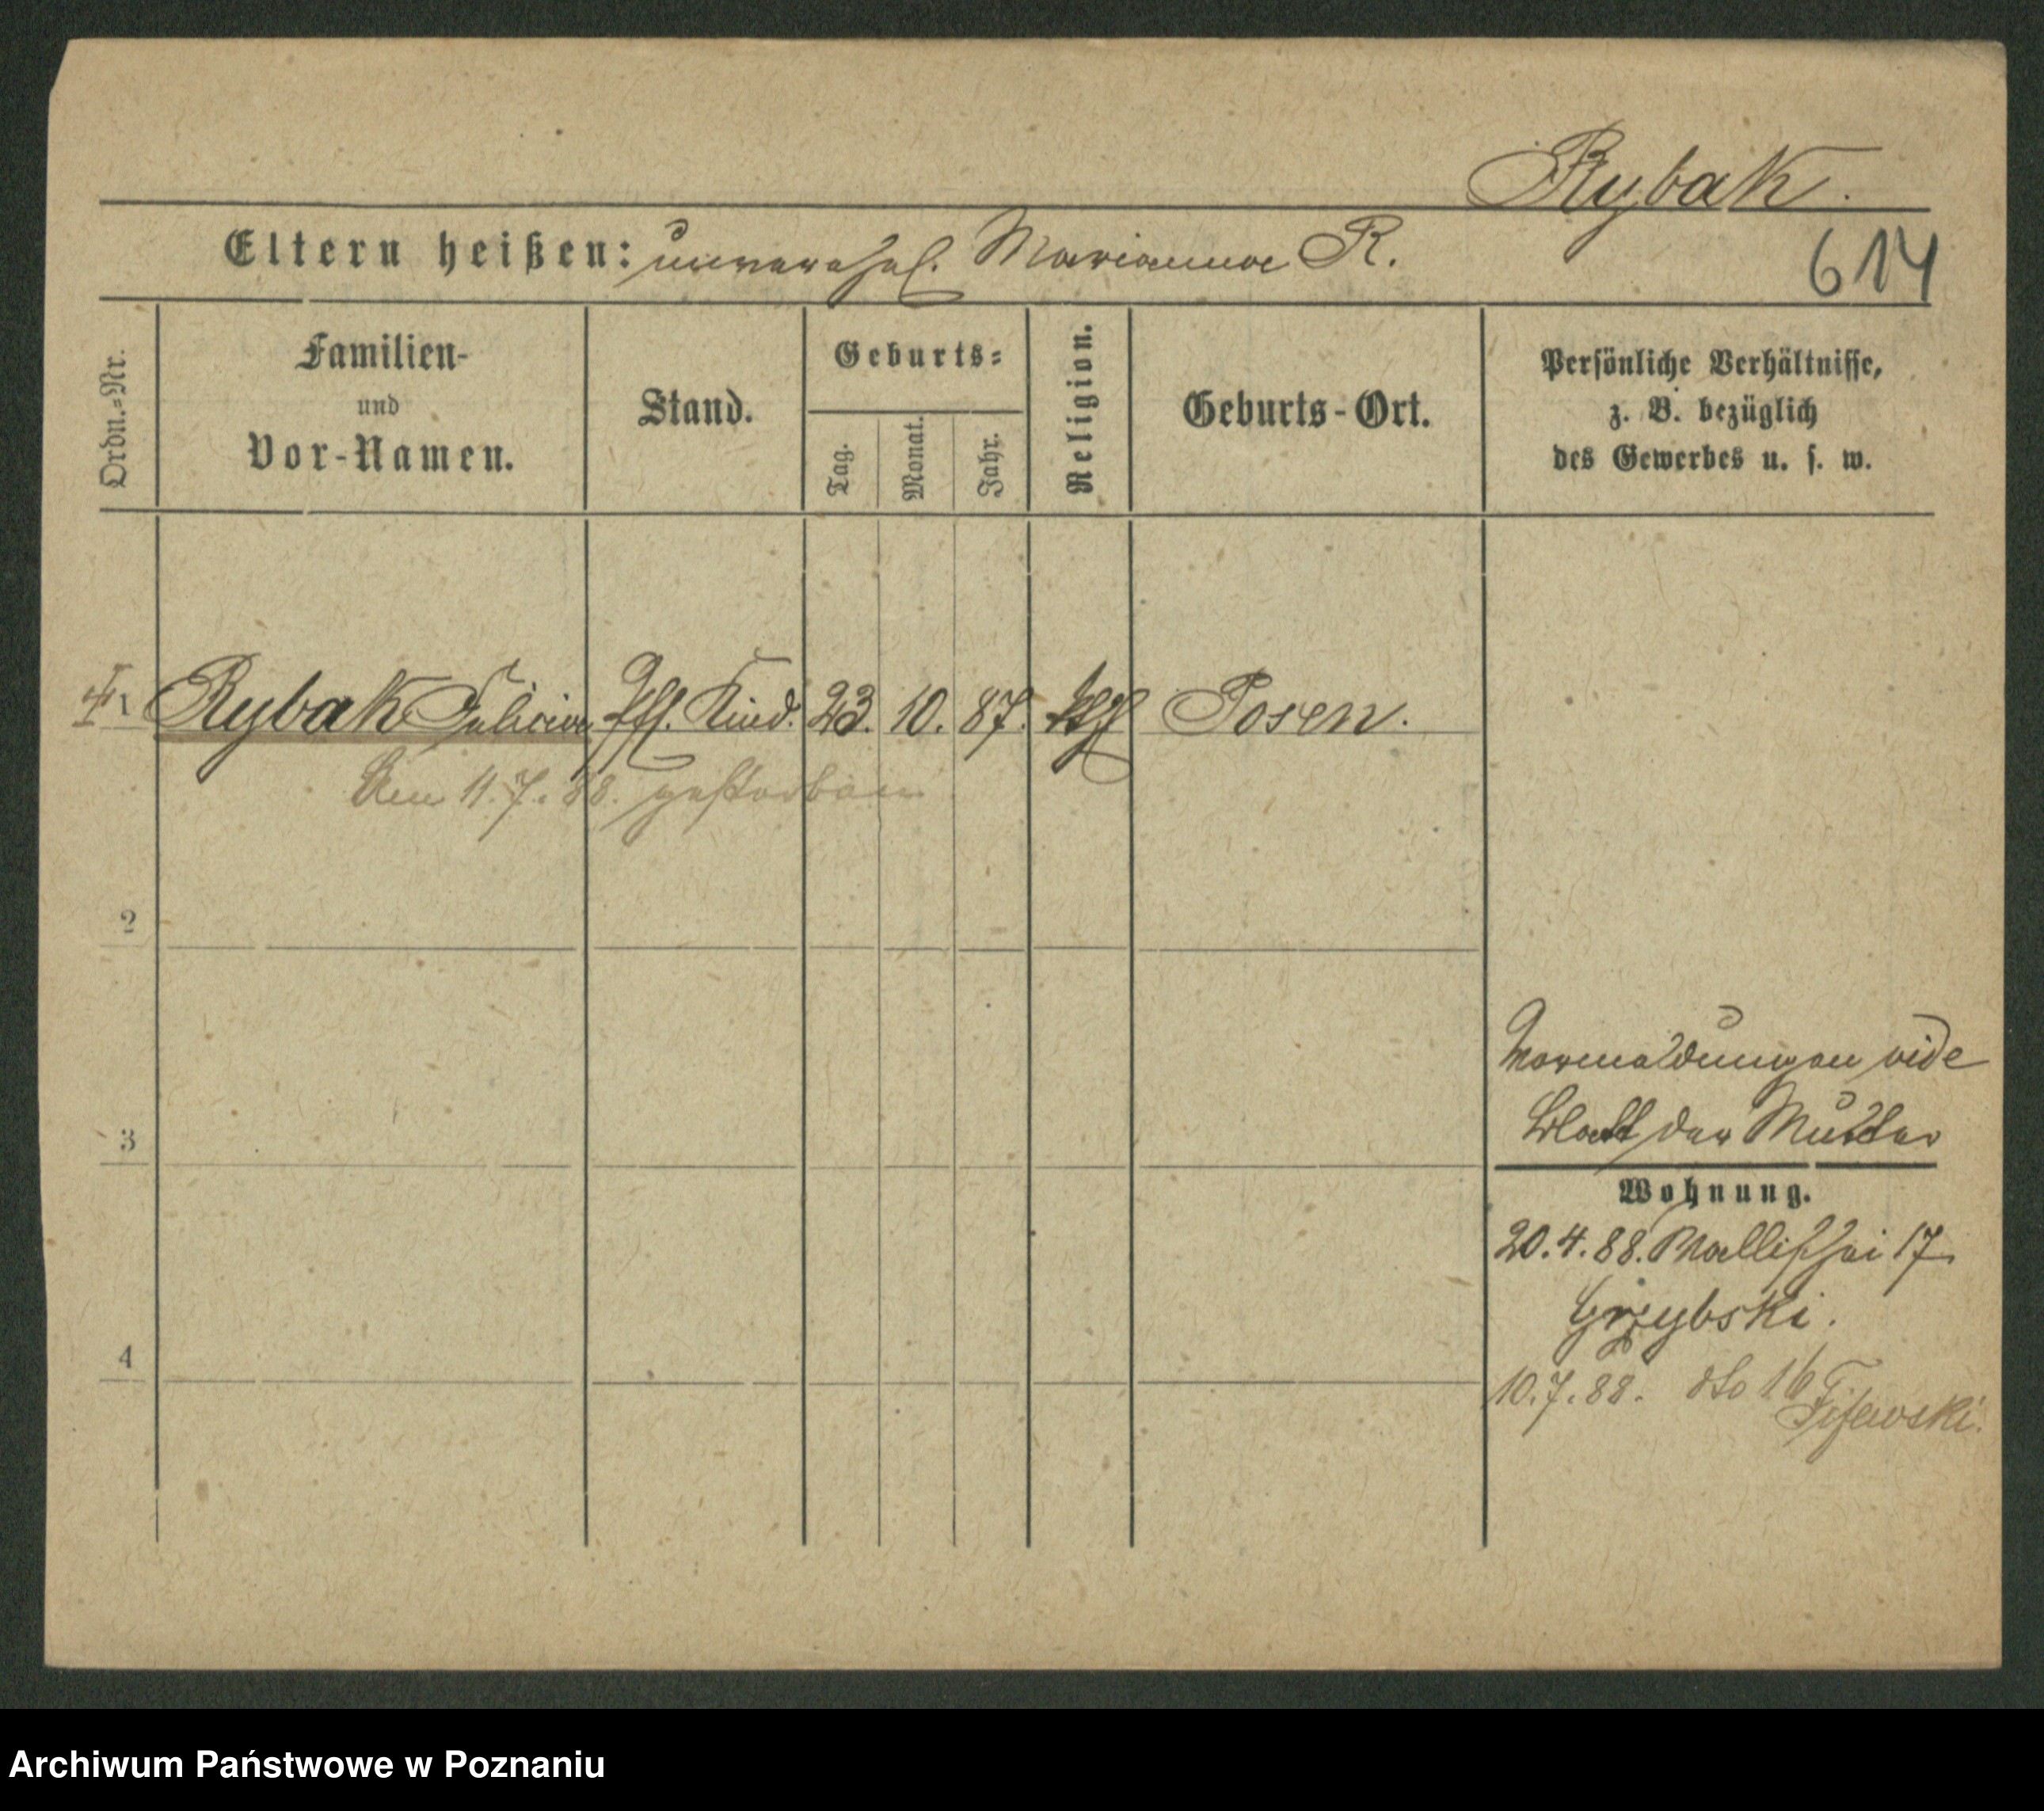 Rybak.
Eltern heißen: unverehel. Marianna R.
614
Ordn.-Nr.
Familien-
und
Vor-Namen.
Stand.
Geburts-
Tag.
Monat.
Jahr.
Religion.
Geburts-Ort.
Persönliche Verhältnisse,
z. B. bezüglich
des Gewerbes u. s. w.
1 Rybak Kind. 23. 10. 87. kth Posen.
Am 11.7.88. gestorben
2
3
4
Vormeldungen vide
Blatt der Mutter
Wohnung.
20.4.88. Wallischei 17
Grzybski.
10.7.88. dto 16